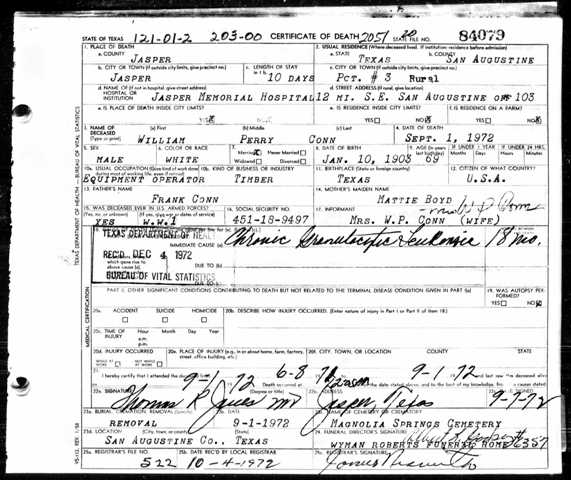 STATE OF TEXAS 121-01-2 203-00 CERTIFICATE OF DEATH 2051 STATE FILE NO. 84079
1. PLACE OF DEATH 2. USUAL RESIDENCE (Where deceased lived. If institution: residence before admission)
a. COUNTY JASPER a. STATE TEXAS b. COUNTY SAN AUGUSTINE
b. CITY OR TOWN (If outside city limits, give precinct no.) JASPER c. LENGTH OF STAY in 1 b 10 DAYS c. CITY OR TOWN (If outside city limits, give precinct no.) PCT. # 3 RURAL
d. NAME OF (If not in hospital, give street address) HOSPITAL OR INSTITUTION JASPER MEMORIAL HOSPITAL d. STREET ADDRESS (If rural, give location) 12 MI. S.E. SAN AUGUSTINE OFF 103
e. IS PLACE OF DEATH INSIDE CITY LIMITS? YES NO e. IS RESIDENCE INSIDE CITY LIMITS? YES NO f. IS RESIDENCE ON A FARM? YES NO
3. NAME OF DECEASED (Type or print) (a) First WILLIAM (b) Middle PERRY (c) Last CONN 4. DATE OF DEATH SEPT. 1, 1972
5. SEX MALE 6. COLOR OR RACE WHITE 7. Married Never Married Widowed Divorced 8. DATE OF BIRTH JAN. 10, 1903 9. AGE (In years last birthday) 69 IF UNDER 1 YEAR Months Days IF UNDER 24 HRS. Hours Minutes
10a. USUAL OCCUPATION (Give kind of work done during most of working life, even if retired) EQUIPMENT OPERATOR 10b. KIND OF BUSINESS OR INDUSTRY TIMBER 11. BIRTHPLACE (State or foreign country) TEXAS 12. CITIZEN OF WHAT COUNTRY? U.S.A.
13. FATHER'S NAME FRANK CONN 14. MOTHER'S MAIDEN NAME MATTIE BOYD
15. WAS DECEASED EVER IN U.S. ARMED FORCES? (Yes, no, or unknown) YES W.W.1 16. SOCIAL SECURITY NO. 451-18-9497 17. INFORMANT MRS. W.P. CONN (WIFE)
TEXAS DEPARTMENT OF HEALTH
IMMEDIATE CAUSE (a) Chronic Granulocytic Leukemia 18 mo.
REC'D DEC 4 1972
which gave rise to above cause (a) DUE TO (b)
BUREAU OF VITAL STATISTICS
PART II. OTHER SIGNIFICANT CONDITIONS CONTRIBUTING TO DEATH BUT NOT RELATED TO THE TERMINAL DISEASE CONDITION GIVEN IN PART I(a) 19. WAS AUTOPSY PERFORMED? YES NO
20a. ACCIDENT SUICIDE HOMICIDE 20b. DESCRIBE HOW INJURY OCCURRED. (Enter nature of injury in Part I or Part II of item 18.)
20c. TIME OF INJURY Hour a.m. p.m. Month Day Year
20d. INJURY OCCURRED WHILE AT WORK NOT WHILE AT WORK 20e. PLACE OF INJURY (e.g., in or about home, farm, factory, street, office building, etc.) 20f. CITY, TOWN, OR LOCATION COUNTY STATE
21. I hereby certify that I attended the deceased 6-8 72 9-1 72 and last saw the deceased alive
9-1 72 Death occurred at the date stated above, and to the best of my knowledge, from the causes stated.
22a. SIGNATURE Thomas R Jones MD 22b. ADDRESS Jasper Texas 9-7-72
23a. BURIAL, CREMATION, REMOVAL (Specify) REMOVAL 23b. DATE 9-1-1972 23c. NAME OF CEMETERY OR CREMATORY MAGNOLIA SPRINGS CEMETERY
23d. LOCATION (City, town, or county) (State) SAN AUGUSTINE CO., TEXAS 24. FUNERAL DIRECTOR'S SIGNATURE WYMAN ROBERTS FUNERAL HOME 6357
25a. REGISTRAR'S FILE NO. 522 25b. DATE REC'D BY LOCAL REGISTRAR 10-4-1972 25c. REGISTRAR'S SIGNATURE
TEXAS DEPARTMENT OF HEALTH - BUREAU OF VITAL STATISTICS
MEDICAL CERTIFICATION